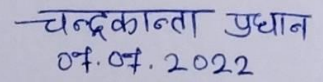 चन्द्रकान्ता प्रधान
07.07.2022